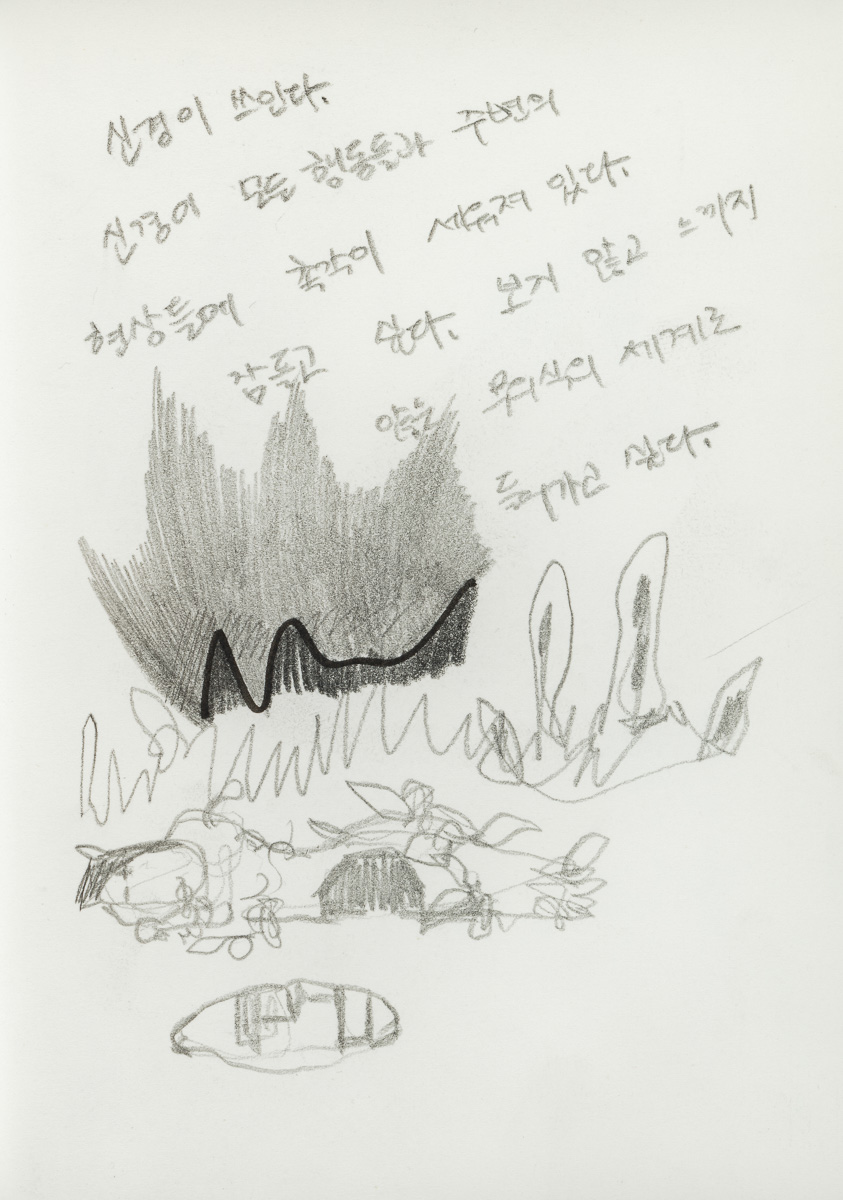 신경이 쓰인다.
신경이 모든 행동들과 주변의
현상들에 촉각이 세워져 있다.
잠들고 싶다. 보지 않고 느끼지
않는 무의식의 세계로
들어가고 싶다.